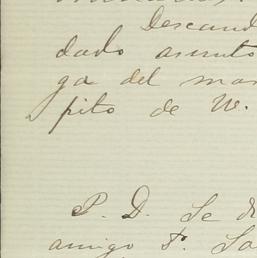 Descand
dado asunto
ga del mas
pito de W.
P. D. Se di
amigo Fr. Sa